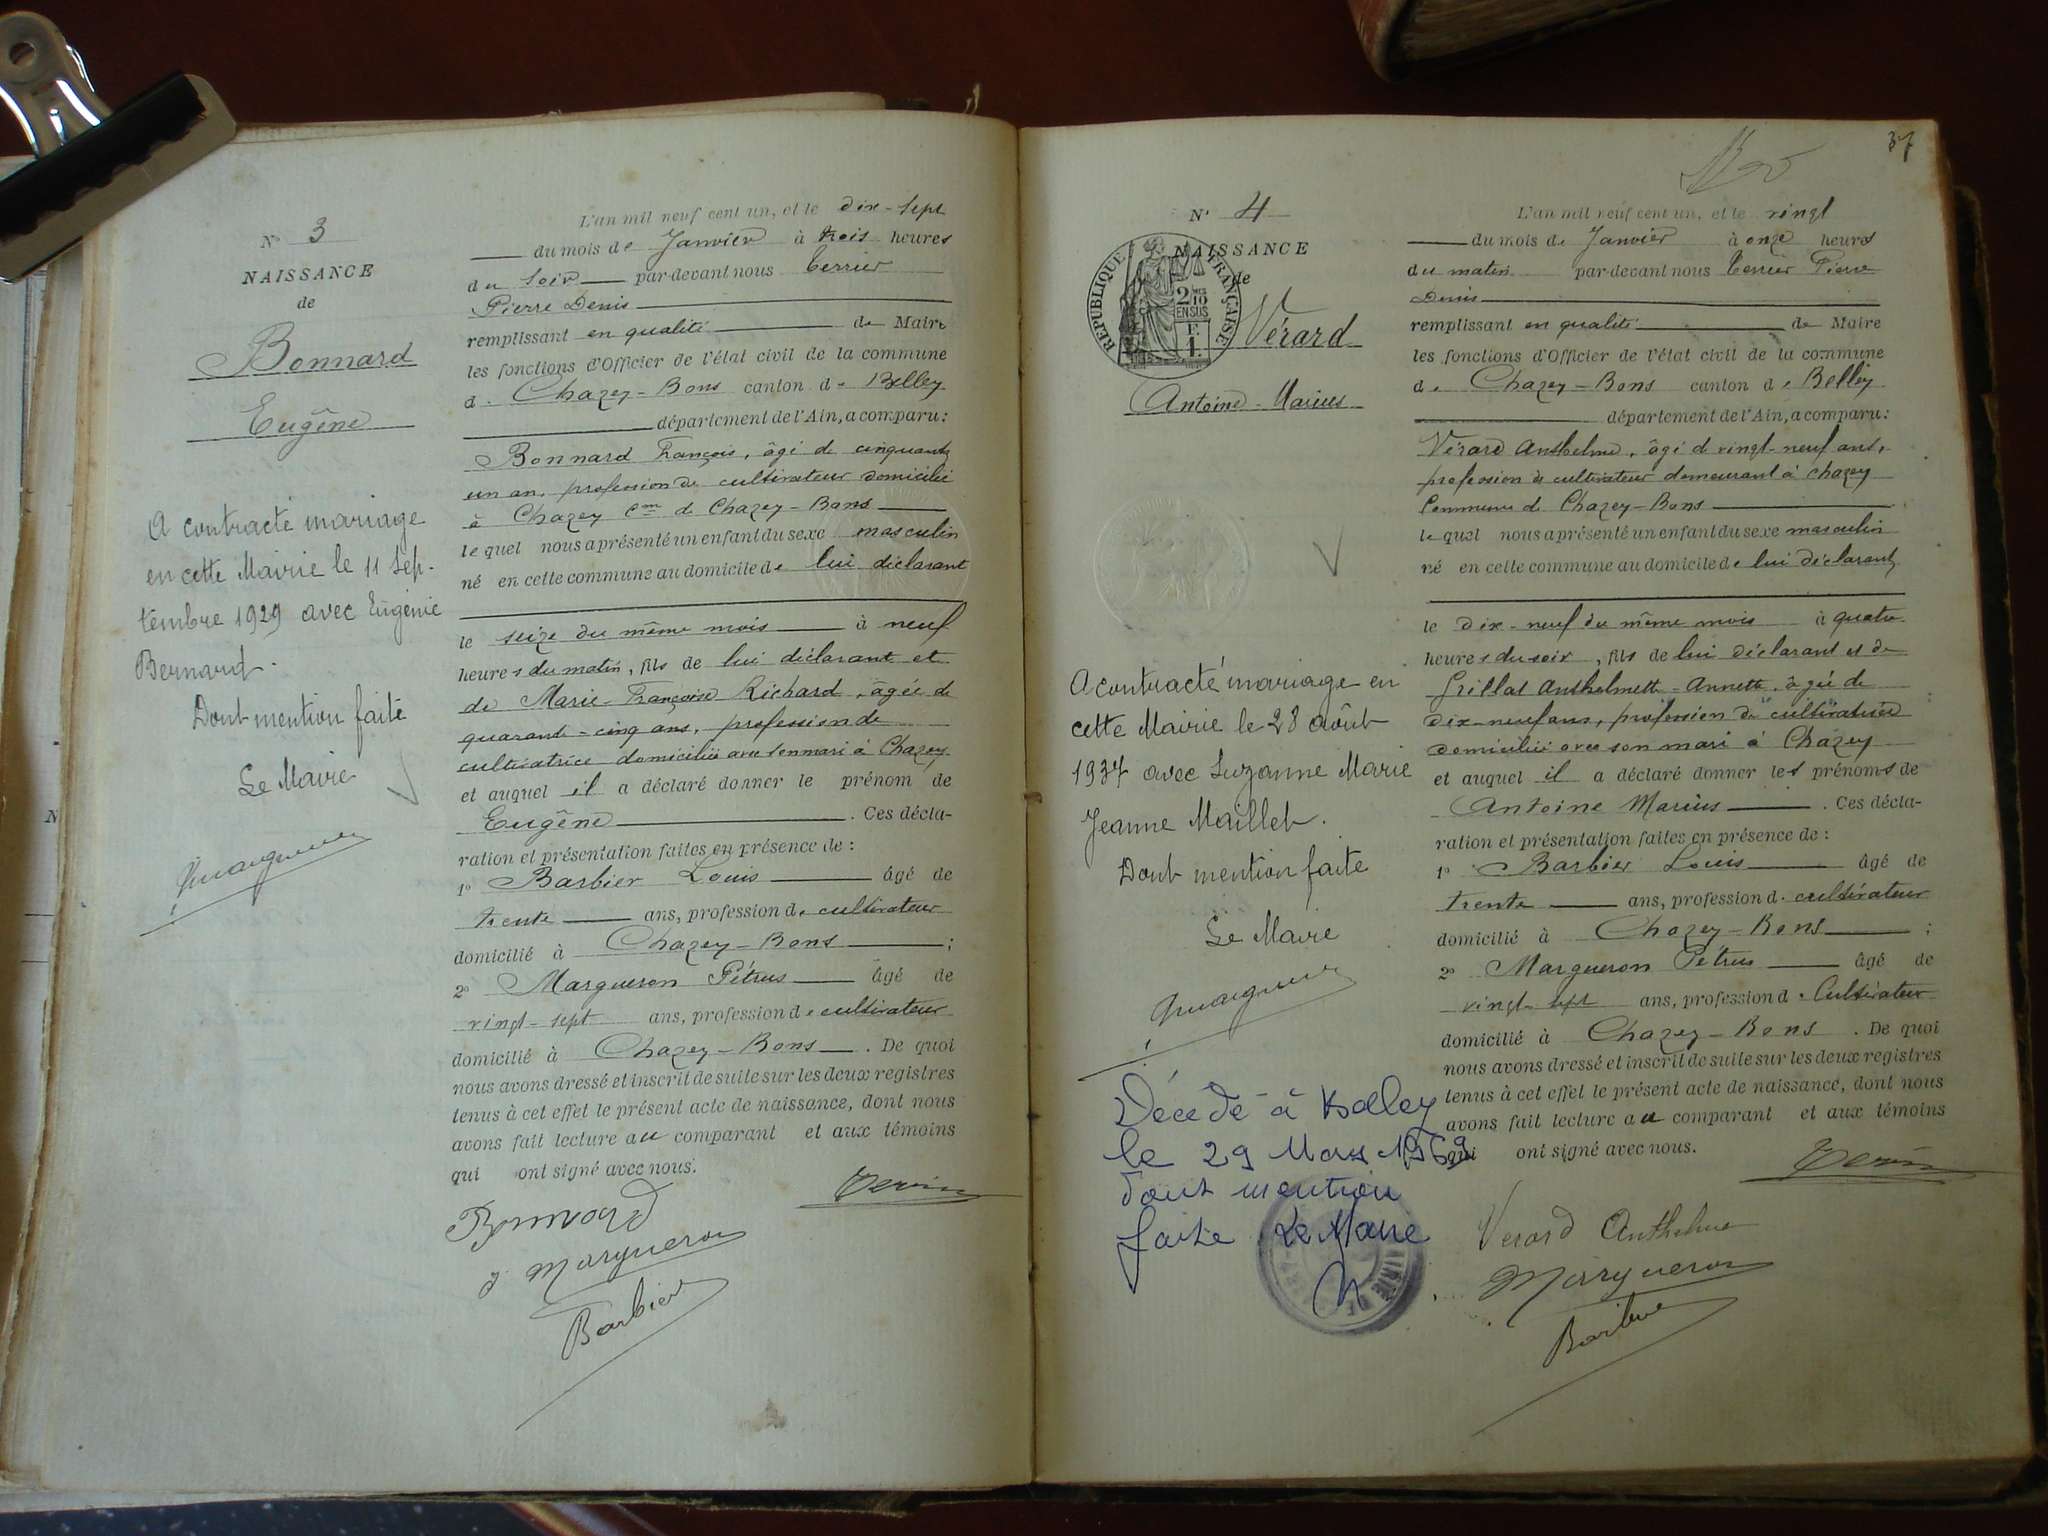 N° 3
NAISSANCE
de
Bonnard
Eugène
A contracté mariage
en cette Mairie le 11 Sep-
tembre 1929 avec Eugénie
Bernard.
Dont mention faite
Le Maire
L'an mil neuf cent un, et le dix-sept
du mois de Janvier à trois heures
du soir par-devant nous Terrier
Pierre Denis
remplissant en qualité de Maire
les fonctions d'Officier de l'état civil de la commune
de Chazey-Bons canton de Belley
département de l'Ain, a comparu:
Bonnard François, âgé de cinquante
un an, profession de cultivateur domicilié
à Chazey Cne de Chazey-Bons
lequel nous a présenté un enfant du sexe masculin
né en cette commune au domicile de lui déclarant
le seize du même mois à neuf
heures du matin, fils de lui déclarant et
de Marie-Françoise Richard, âgée de
quarante-cinq ans, profession de
cultivatrice domiciliée avec son mari à Chazey
et auquel il a déclaré donner le prénom de
Eugène. Ces décla-
ration et présentation faites en présence de:
1° Barbier Louis âgé de
trente ans, profession de cultivateur
domicilié à Chazey-Bons;
2° Margueron Pétrus âgé de
vingt-sept ans, profession de cultivateur
domicilié à Chazey-Bons. De quoi
nous avons dressé et inscrit de suite sur les deux registres
tenus à cet effet le présent acte de naissance, dont nous
avons fait lecture au comparant et aux témoins
qui ont signé avec nous.
Terrier
Bonnard
P Margueron
Barbier
37
N° 4
NAISSANCE
de
RÉPUBLIQUE FRANÇAISE
2/10
EN SUS
Vérard
Antoine-Marius
A contracté mariage en
cette Mairie le 28 août
1937 avec Suzanne Marie
Jeanne Maillet.
Dont mention faite
Le Maire
Décédé à Belley
le 29 Mars 1969
dont mention
faite Le Maire
L'an mil neuf cent un, et le vingt
du mois de Janvier à onze heures
du matin par-devant nous Terrier Pierre
Denis
remplissant en qualité de Maire
les fonctions d'Officier de l'état civil de la commune
de Chazey-Bons canton de Belley
département de l'Ain, a comparu:
Vérard Anthelme, âgé de vingt-neuf ans,
profession de cultivateur demeurant à Chazey
Commune de Chazey-Bons
lequel nous a présenté un enfant du sexe masculin
né en cette commune au domicile de lui déclarant
le dix-neuf du même mois à quatre
heures du soir, fils de lui déclarant et de
Grillat Anthelmette-Annette, âgée de
dix-neuf ans, profession de cultivatrice
domiciliée avec son mari à Chazey
et auquel il a déclaré donner les prénoms de
Antoine Marius. Ces décla-
ration et présentation faites en présence de:
1° Barbier Louis âgé de
trente ans, profession de cultivateur
domicilié à Chazey-Bons;
2° Margueron Pétrus âgé de
vingt-sept ans, profession de Cultivateur
domicilié à Chazey-Bons. De quoi
nous avons dressé et inscrit de suite sur les deux registres
tenus à cet effet le présent acte de naissance, dont nous
avons fait lecture au comparant et aux témoins
qui ont signé avec nous.
Terrier
Verard Anthelme
Margueron
Barbier